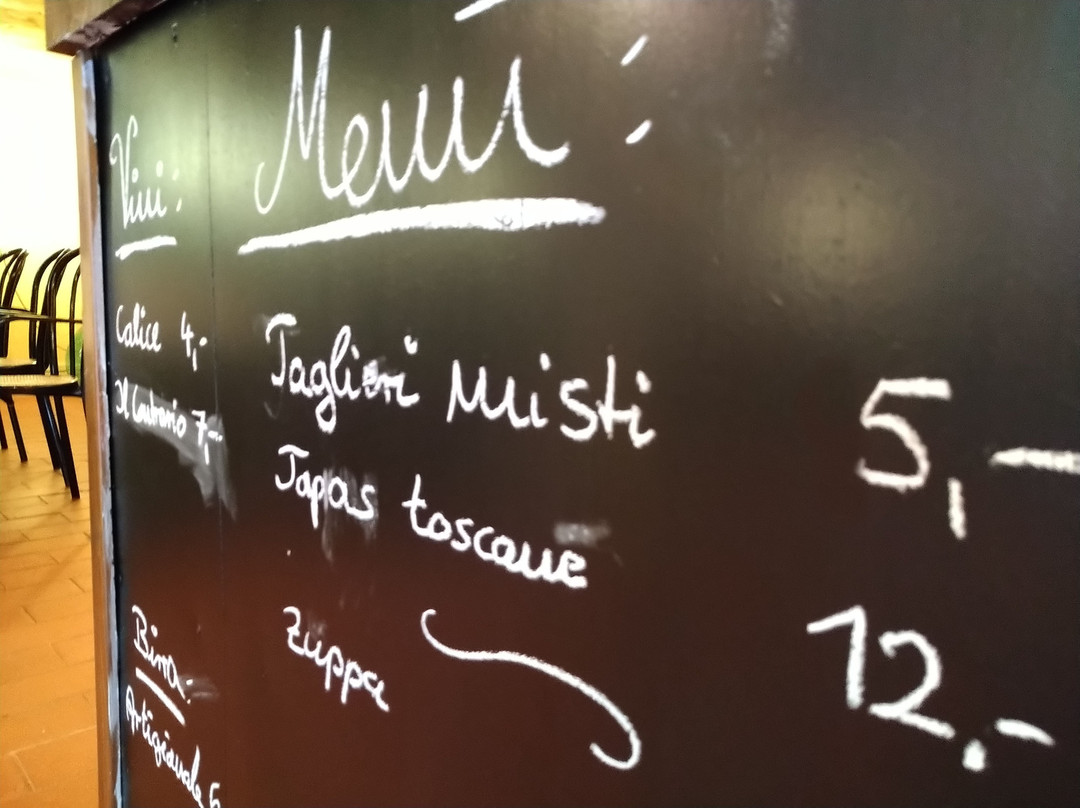 Vini:
Calice 4,-
Birra:
Artigianale 6
Menu:
Taglieri Misti 5,-
Tapas toscane
Zuppa 12,-